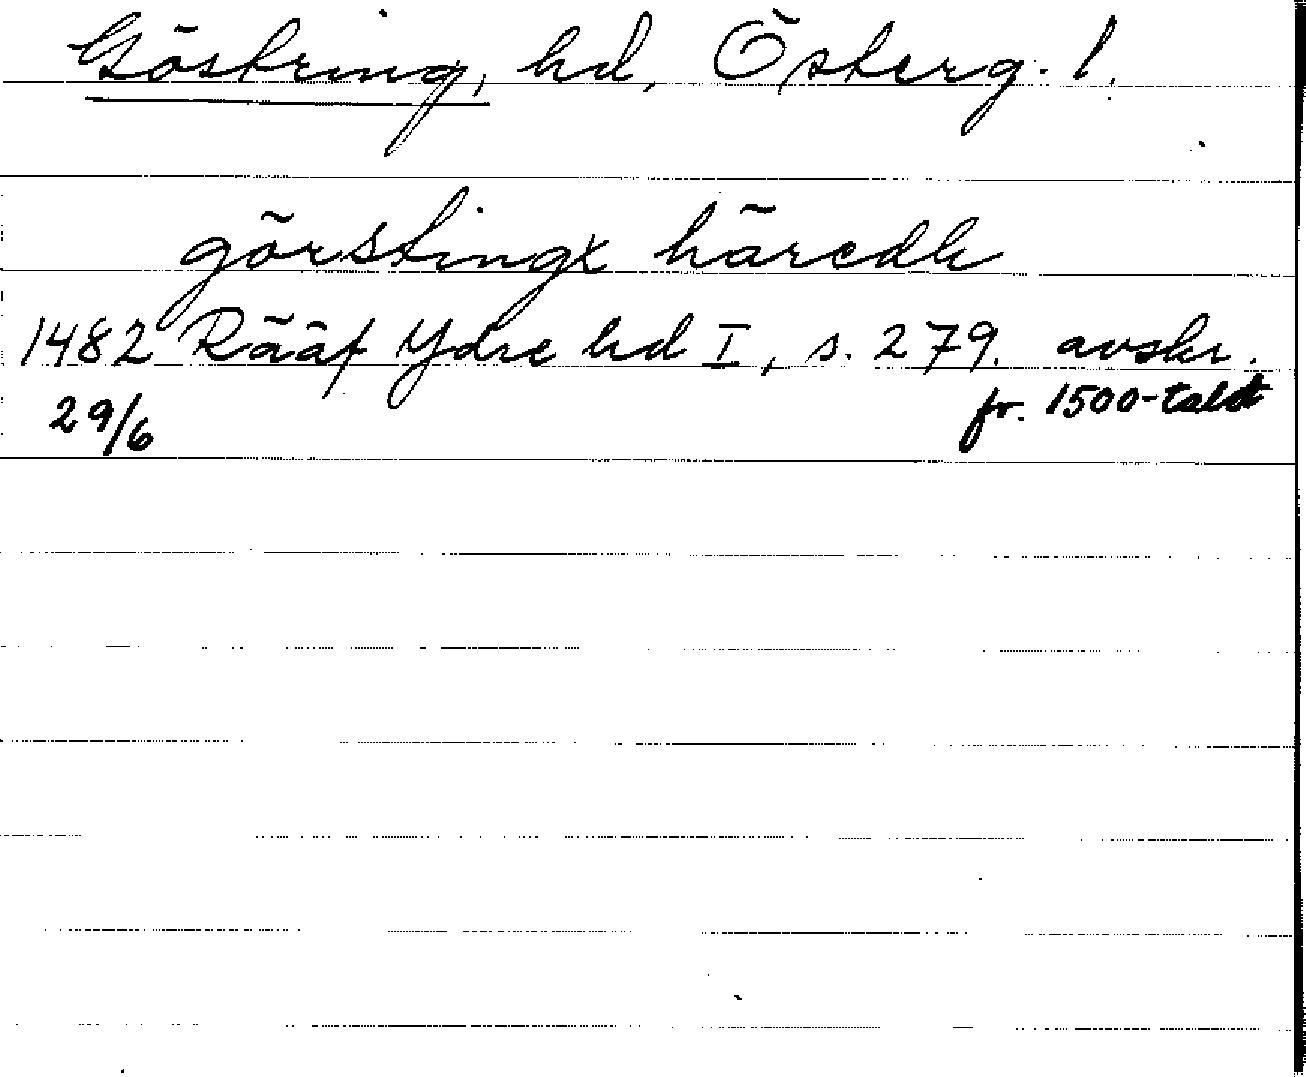 Göstring, hd, Österg. l.
görstingx häredh
1482 Rääf Ydre hd I, s. 279. avskr.
29/6 fr. 1500-talet